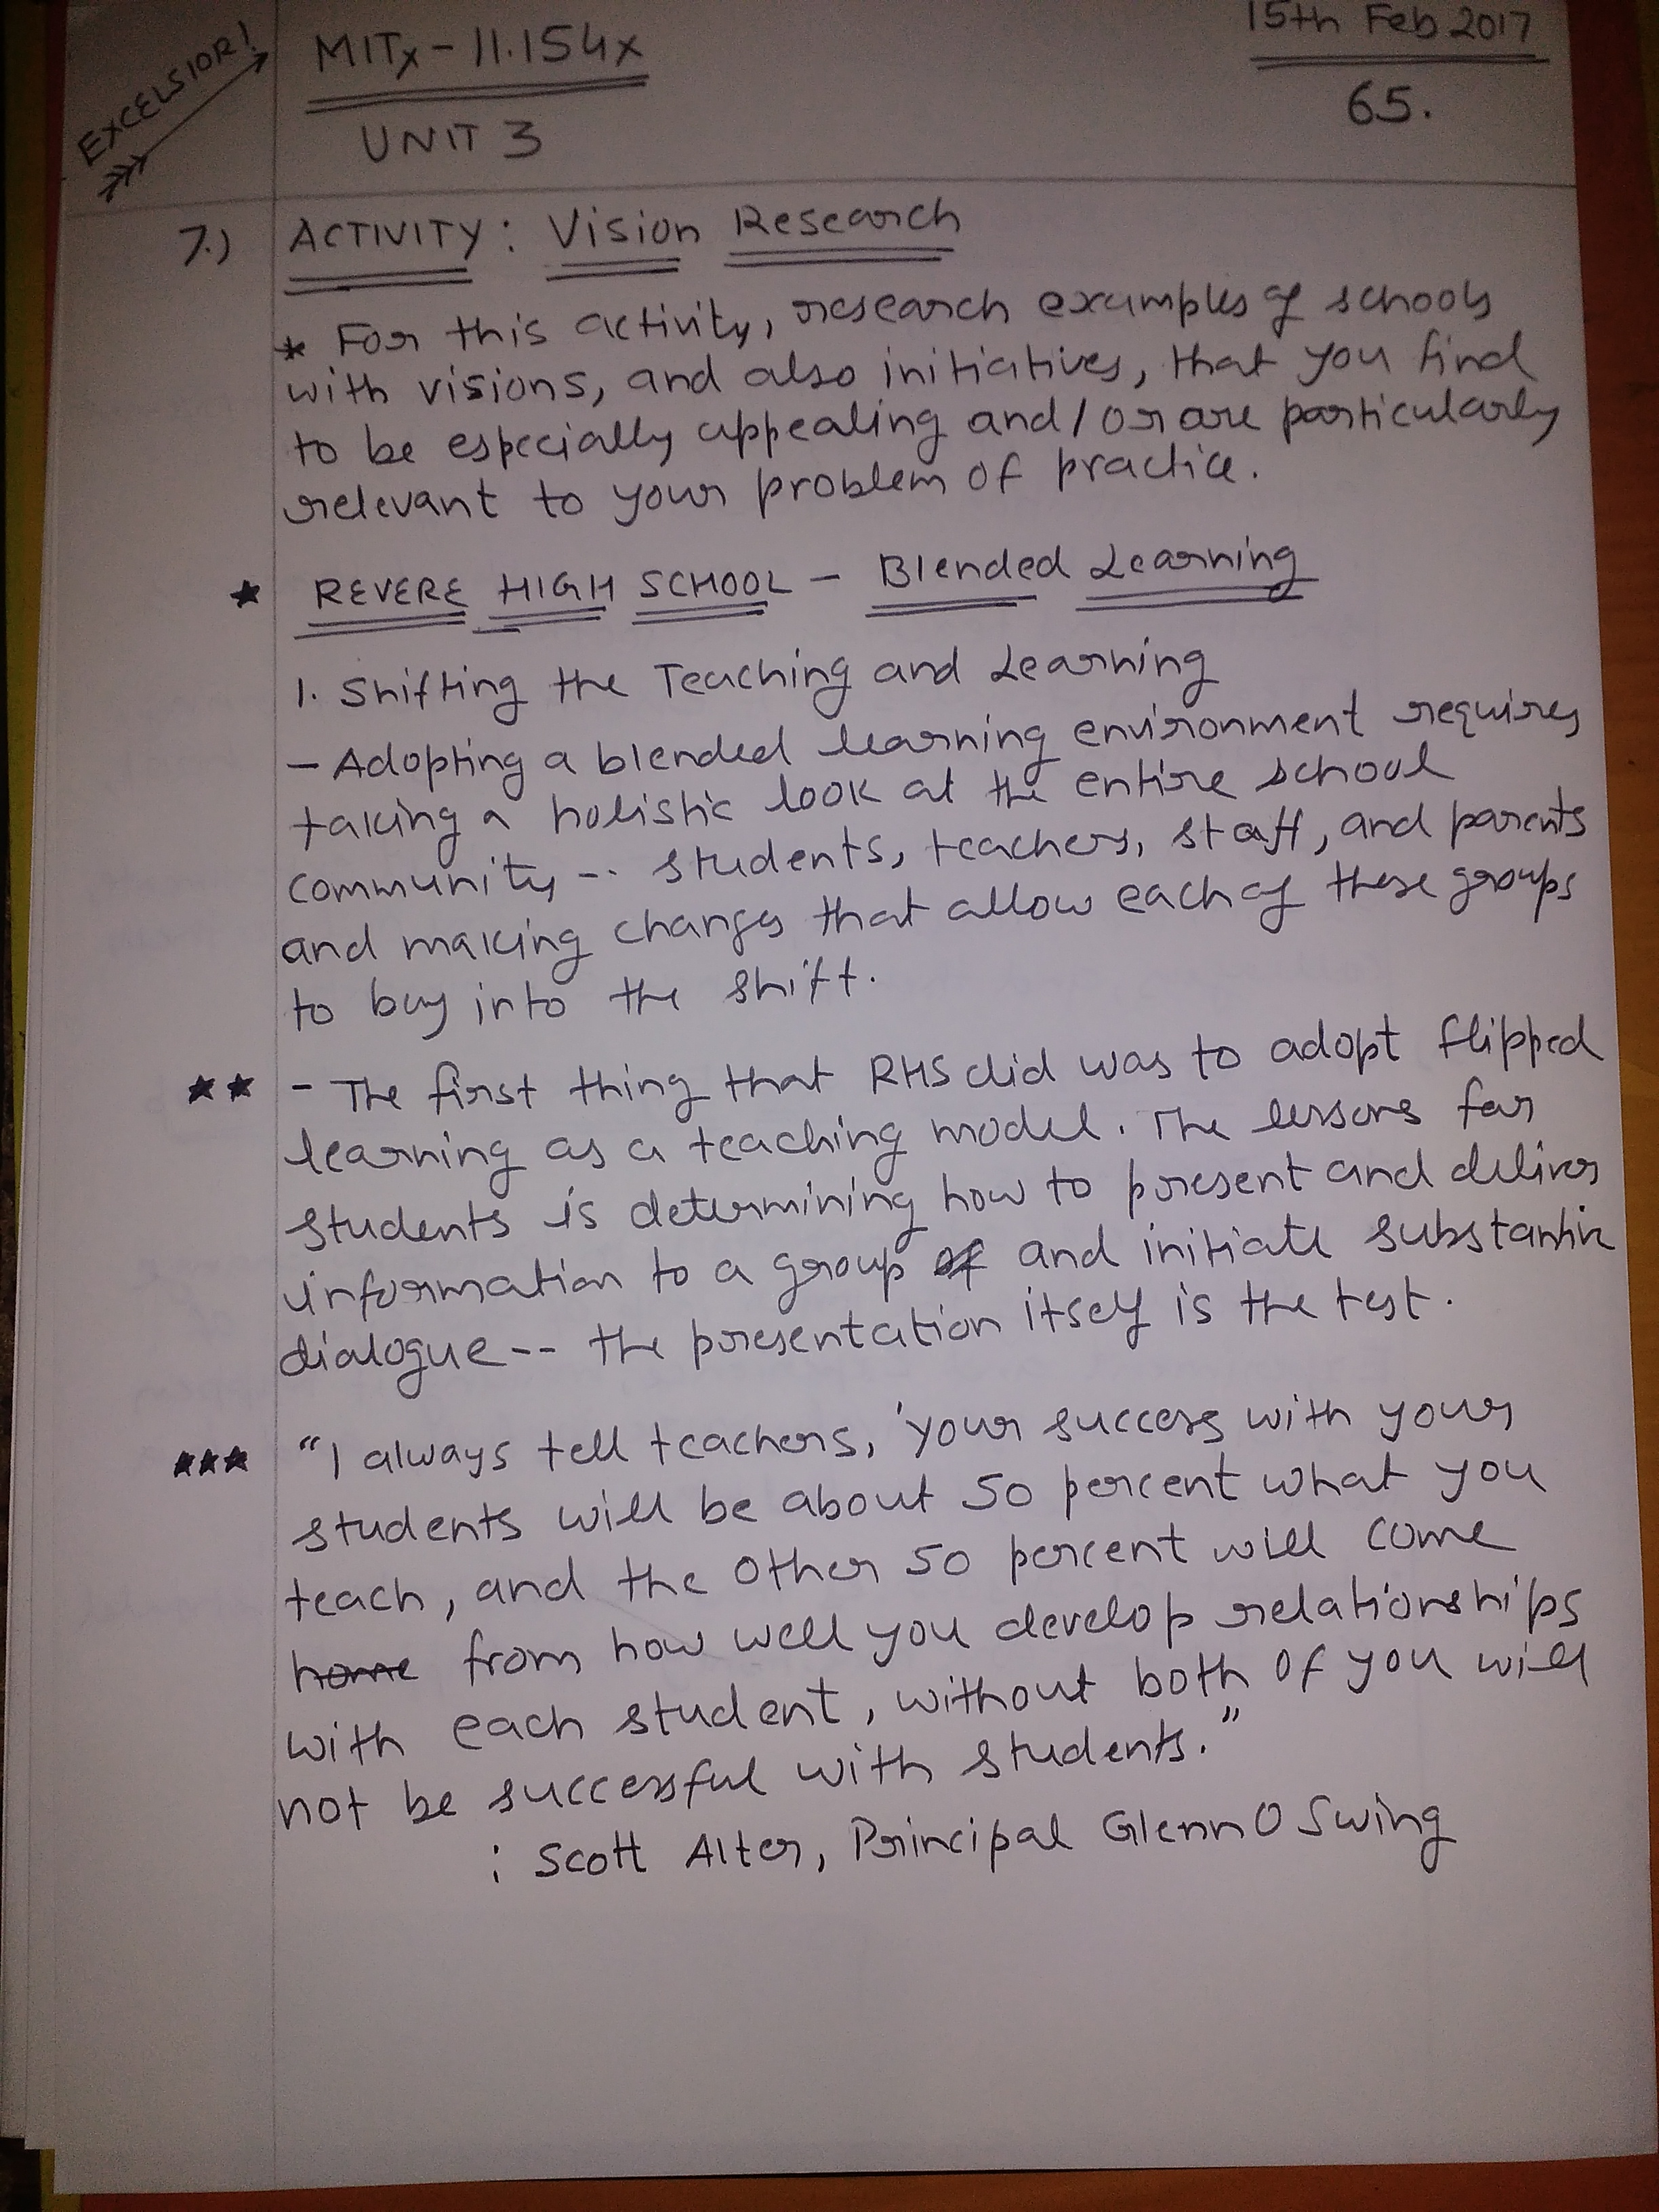 EXCELSIOR!
MITx - 11.154x
15th Feb 2017
UNIT 3
65.
7.) ACTIVITY: Vision Research
* For this activity, research examples of schools
with visions, and also initiatives, that you find
to be especially appealing and/or are particularly
relevant to your problem of practice.
★ REVERE HIGH SCHOOL - Blended Learning
1. Shifting the Teaching and Learning
- Adopting a blended learning environment requires
taking a holistic look at the entire school
community -- students, teachers, staff, and parents
and making changes that allow each of these groups
to buy into the shift.
★★ - The first thing that RHS did was to adopt flipped
learning as a teaching model. The lessons for
students is determining how to present and deliver
information to a group of and initiate substantive
dialogue -- the presentation itself is the test.
★★★ "I always tell teachers, 'your success with your
students will be about 50 percent what you
teach, and the other 50 percent will come
home from how well you develop relationships
with each student, without both of you will
not be successful with students."
: Scott Alter, Principal Glenn O Swing